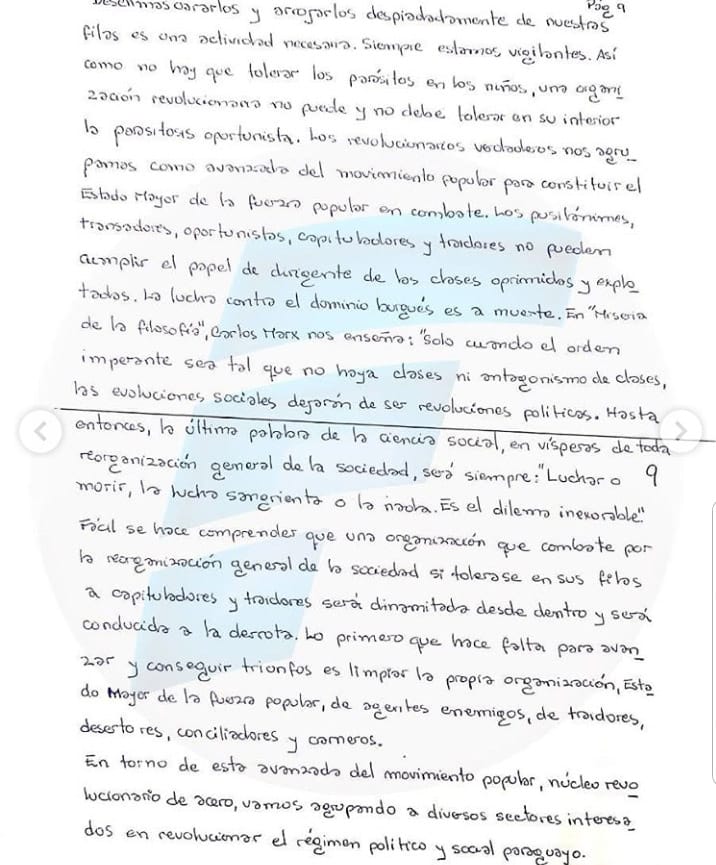 Pág 9
Desenmascararlos y arrojarlos despiadadamente de nuestras
filas es una actividad necesaria. Siempre estamos vigilantes. Así
como no hay que tolerar los parásitos en los niños, una organi
zación revolucionaria no puede y no debe tolerar en su interior
la parasitosis oportunista. Los revolucionarios verdaderos nos agru_
pamos como avanzada del movimiento popular para constituir el
Estado Mayor de la fuerza popular en combate. Los pusilánimes,
transadores, oportunistas, capituladores y traidores no pueden
cumplir el papel de dirigente de las clases oprimidas y explo_
tadas. La lucha contra el dominio burgués es a muerte. En "Miseria
de la filosofía", Carlos Marx nos enseña: "Solo cuando el orden
imperante sea tal que no haya clases ni antagonismo de clases,
las evoluciones sociales dejarán de ser revoluciones políticas. Hasta
entonces, la última palabra de la ciencia social, en vísperas de toda
reorganización general de la sociedad, será siempre: "Luchar o 9
morir, la lucha sangrienta o la nada. Es el dilema inexorable".
Fácil se hace comprender que una organización que combate por
la reorganización general de la sociedad si tolerase en sus filas
a capituladores y traidores será dinamitada desde dentro y será
conducida a la derrota. Lo primero que hace falta para avan_
zar y conseguir triunfos es limpiar la propia organización, Esta_
do Mayor de la fuerza popular, de agentes enemigos, de traidores,
desertores, conciliadores y carneros.
En torno de esta avanzada del movimiento popular, núcleo revo_
lucionario de acero, vamos agrupando a diversos sectores interesa_
dos en revolucionar el régimen político y social paraguayo.